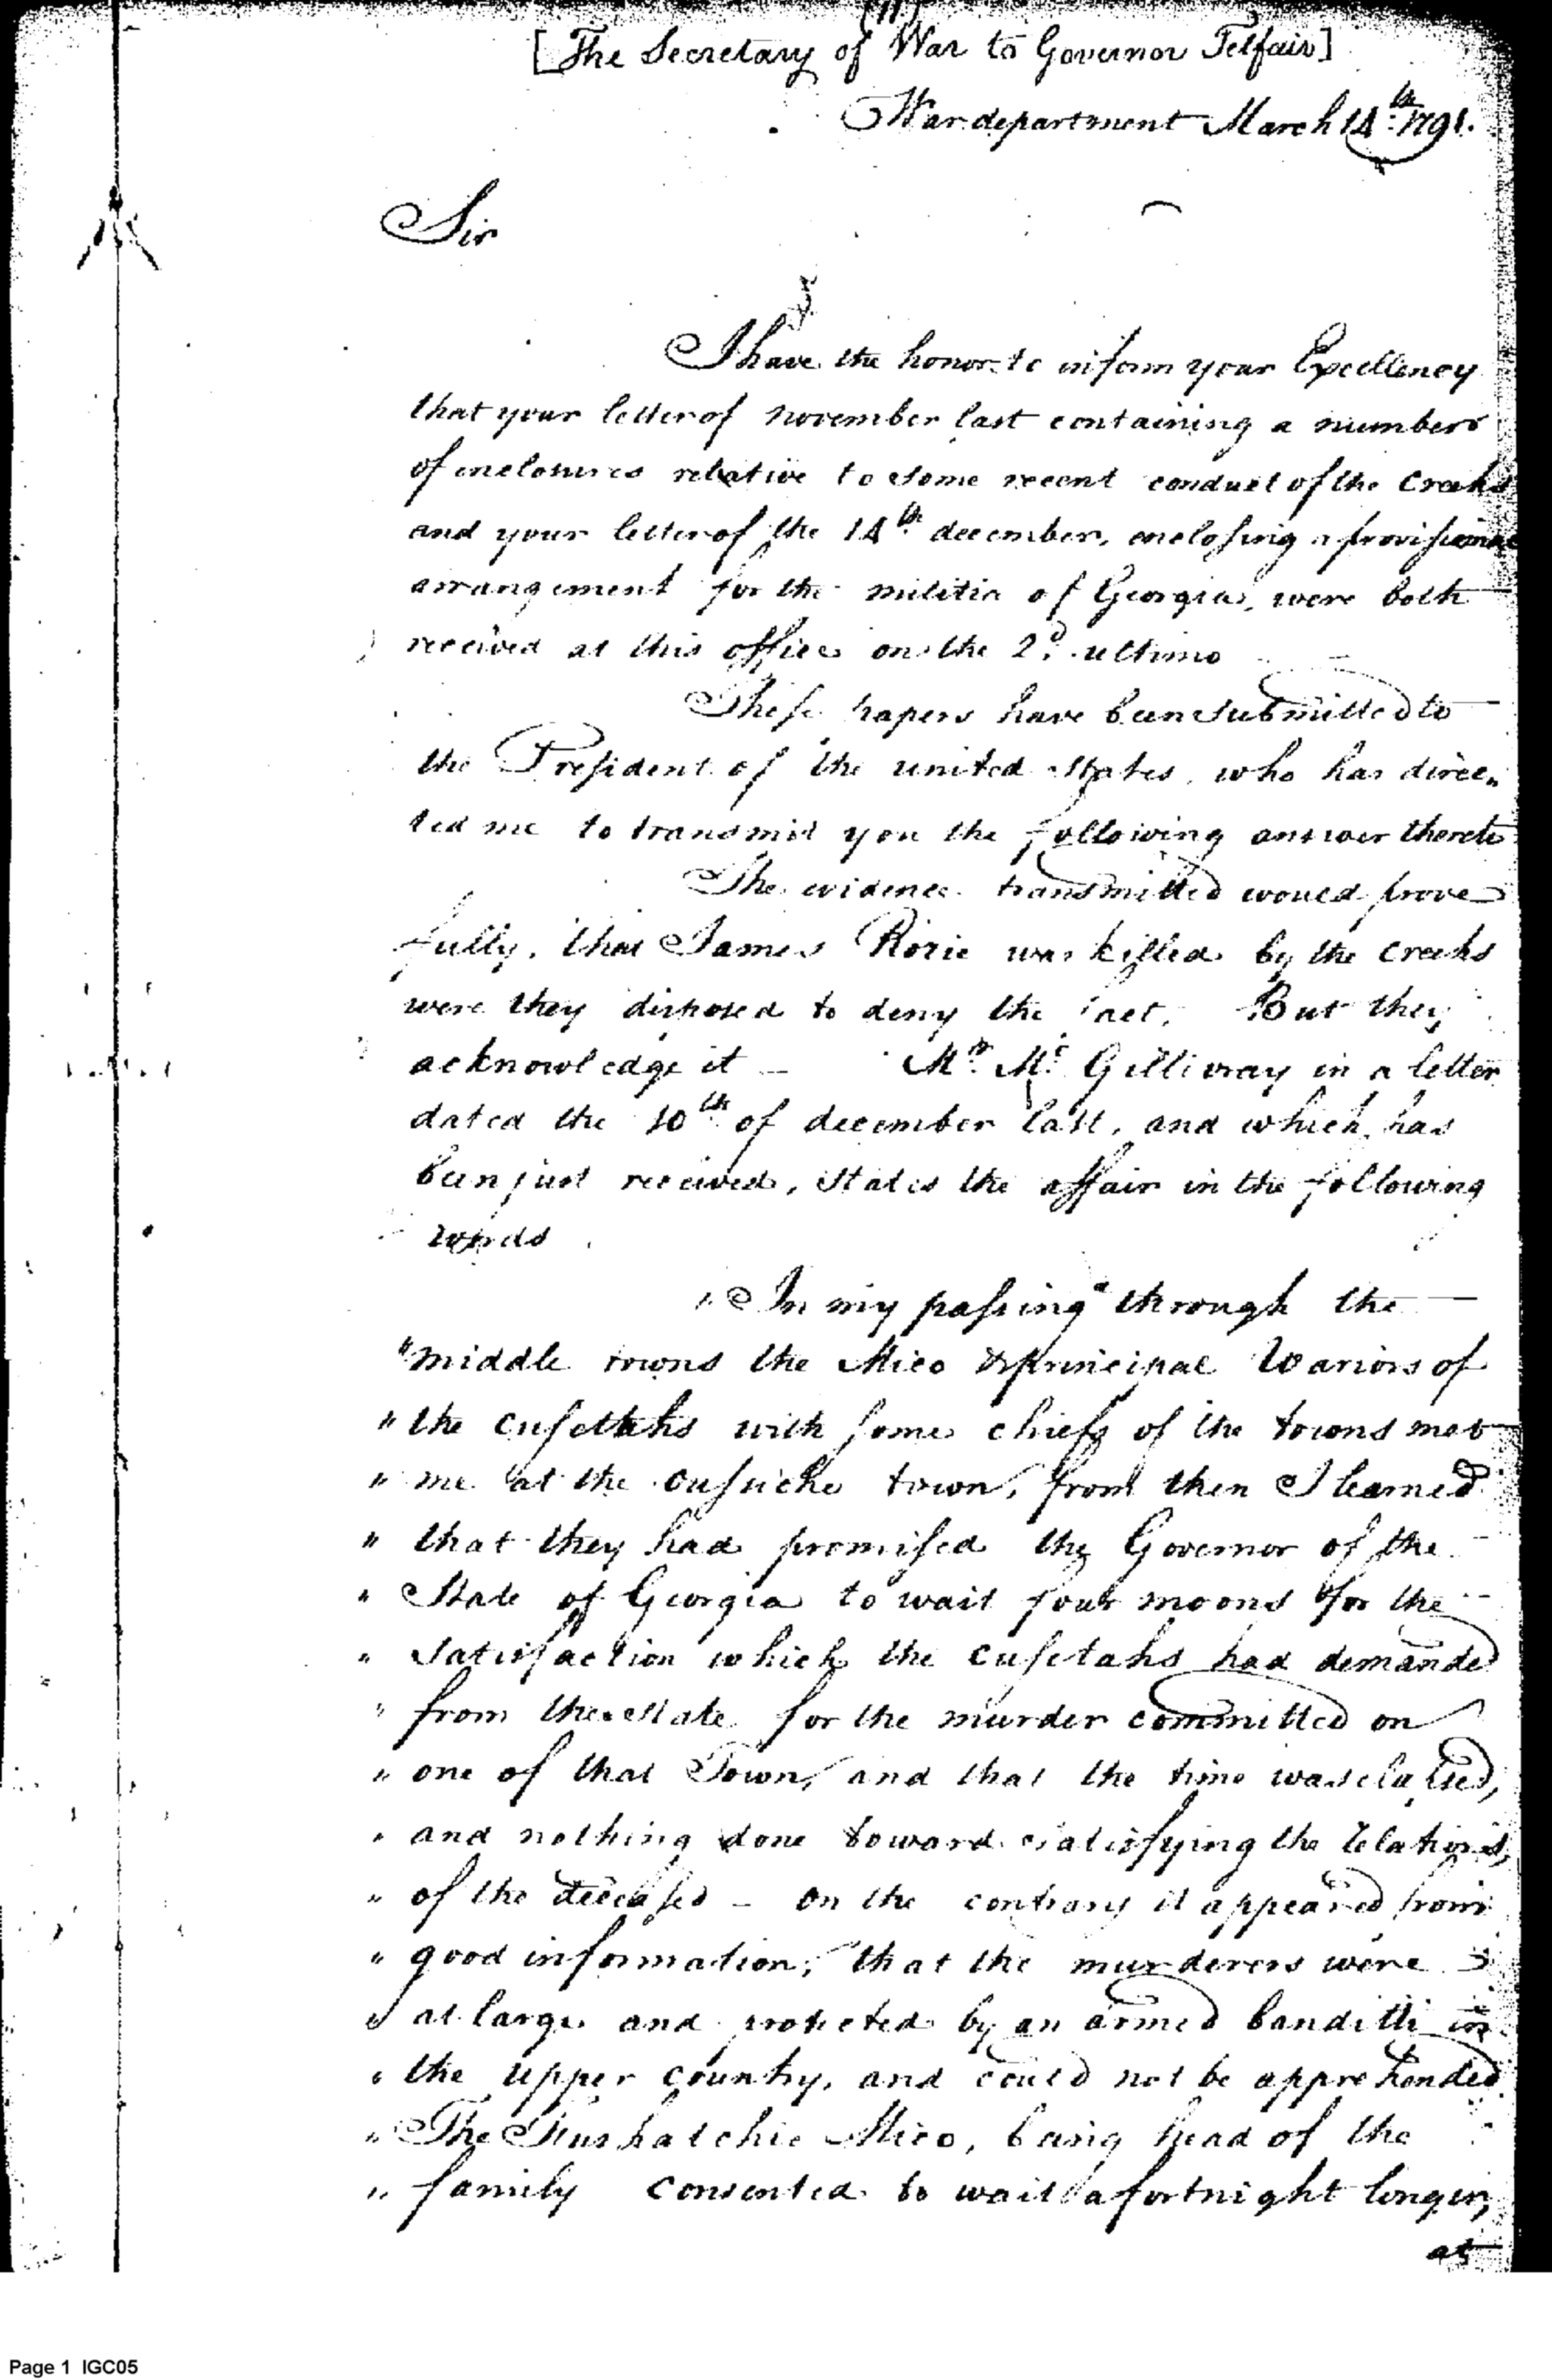 (11)
[The Secretary of War to Governor Telfair]
War department March 14th 1791.
Sir
I have the honor to inform your Excellency
that your letter of november last containing a number
of enclosures relative to some recent conduct of the Creeks
and your letter of the 14th december, enclosing a provisional
arrangement for the militia of Georgia, were both
received at this office on the 2d ultimo
These papers have been submitted to
the President of the united States, who has direc„
ted me to transmit you the following answer thereto
The evidence transmitted would prove
fully, that James Rozie was killed by the creeks
were they disposed to deny the fact. But they
acknowledge it – Mr. Mc. Gillivray in a letter
dated the 10th of december last, and which has
been just received, states the affair in the following
words
"In my passing through the
"middle towns the Mico & principal Wariors of
" the cusettahs with some chiefs of the towns met
" me at the cussiche town, from then I learned
" that they had promised the Governor of the
" State of Georgia to wait four moons for the
" Satisfaction which the cusetahs had demanded
" from the state for the murder committed on
" one of that Town, and that the time was elapsed,
" and nothing done toward satisfying the relations,
" of the deceased – on the contrary it appeared from
" good information, that the murderers were
" at large and protected by an armed banditti in
" the upper country, and could not be apprehended
" The Mico, being head of the
" family consented to wait a fortnight longer,
at
Page 1 IGC05